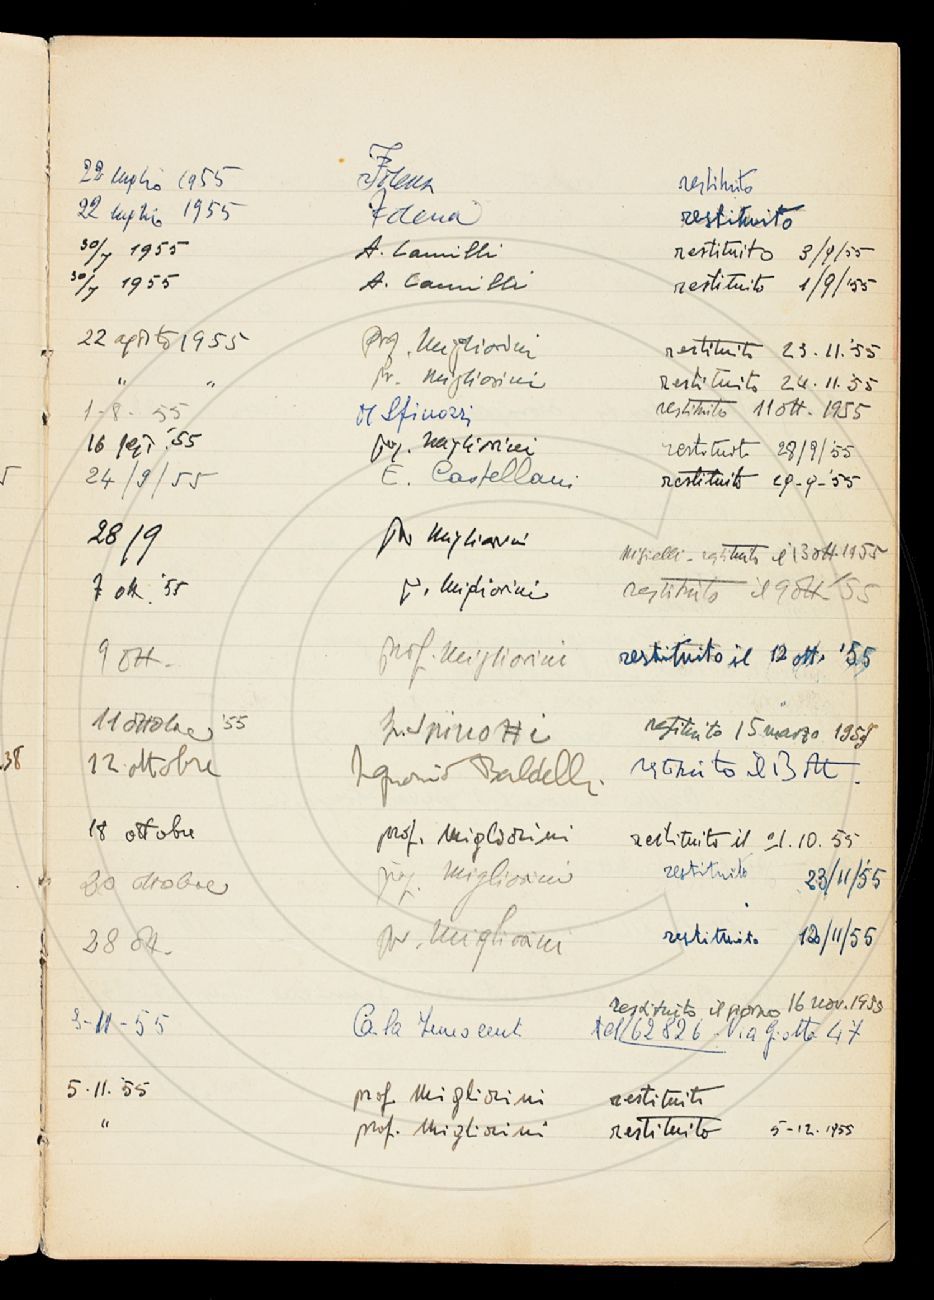 22 luglio 1955 Folena restituito
22 luglio 1955 Folena restituito
30/7 1955 A. Camilli restituito 3/9/55
30/7 1955 A. Camilli restituito 1/9/'55
22 agosto 1955 prof. Migliorini restituito 23.11.'55
" " pr. Migliorini restituito 24.11.'55
1-8-55 restituito 11 ott. 1955
16 '55 prof. Migliorini restituito 28/9/'55
24/9/55 E. Castellani restituito 29-9-'55
28/9 Migliorini restituito il 13 ott. 1955
7 ott. '55 p. Migliorini restituito il 9 ott. '55
9 ott. prof. Migliorini restituito il 12 ott. '55
11 ottobre '55 Spinotti restituito 15 marzo
12 ottobre Baldelli. restituito il 13 ott.
18 ottobre prof. Migliorini restituito il 21.10.55
20 ottobre prof. Migliorini restituito 23/11/55
28 ott. Migliorini restituito /11/55
restituito il giorno 16 nov. 1955
3-11-55 Carla Innocenti tel. 62826 Via Giotto 47
5.11.'55 prof. Migliorini restituito
" prof. Migliorini restituito 5-12-1955